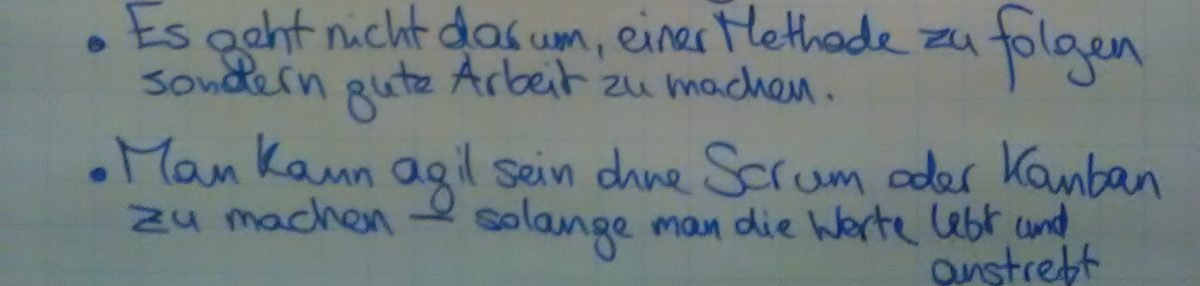 • Es geht nicht darum, einer Methode zu folgen
sondern gute Arbeit zu machen.
• Man kann agil sein ohne Scrum oder Kanban
zu machen – solange man die Werte lebt und
anstrebt